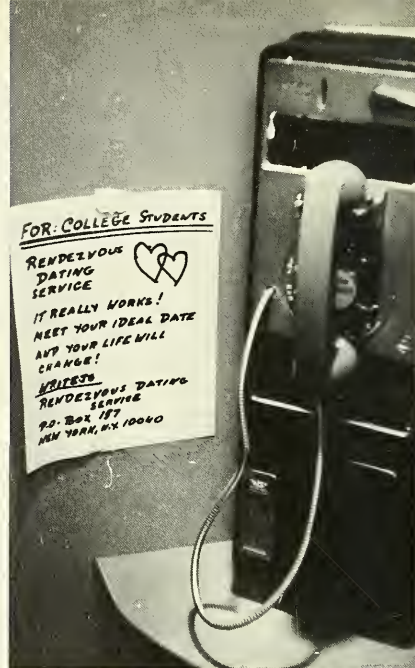 FOR: COLLEGE STUDENTS
RENDEZVOUS
DATING
SERVICE
IT REALLY WORKS!
MEET YOUR IDEAL DATE
AND YOUR LIFE WILL
CHANGE!
WRITE TO
RENDEZVOUS DATING
SERVICE
P.O. BOX 187
NEW YORK, N.Y. 10040